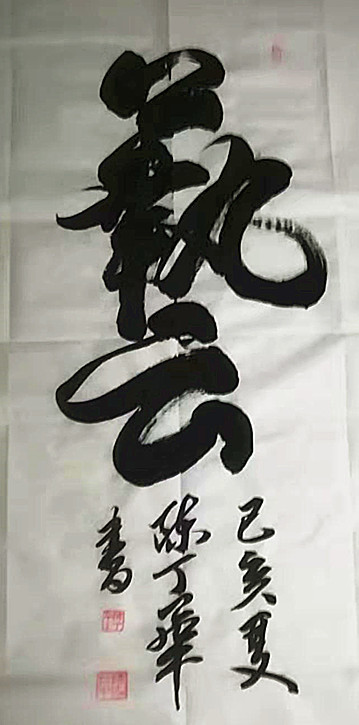 藝
己亥夏
陈丁華
書